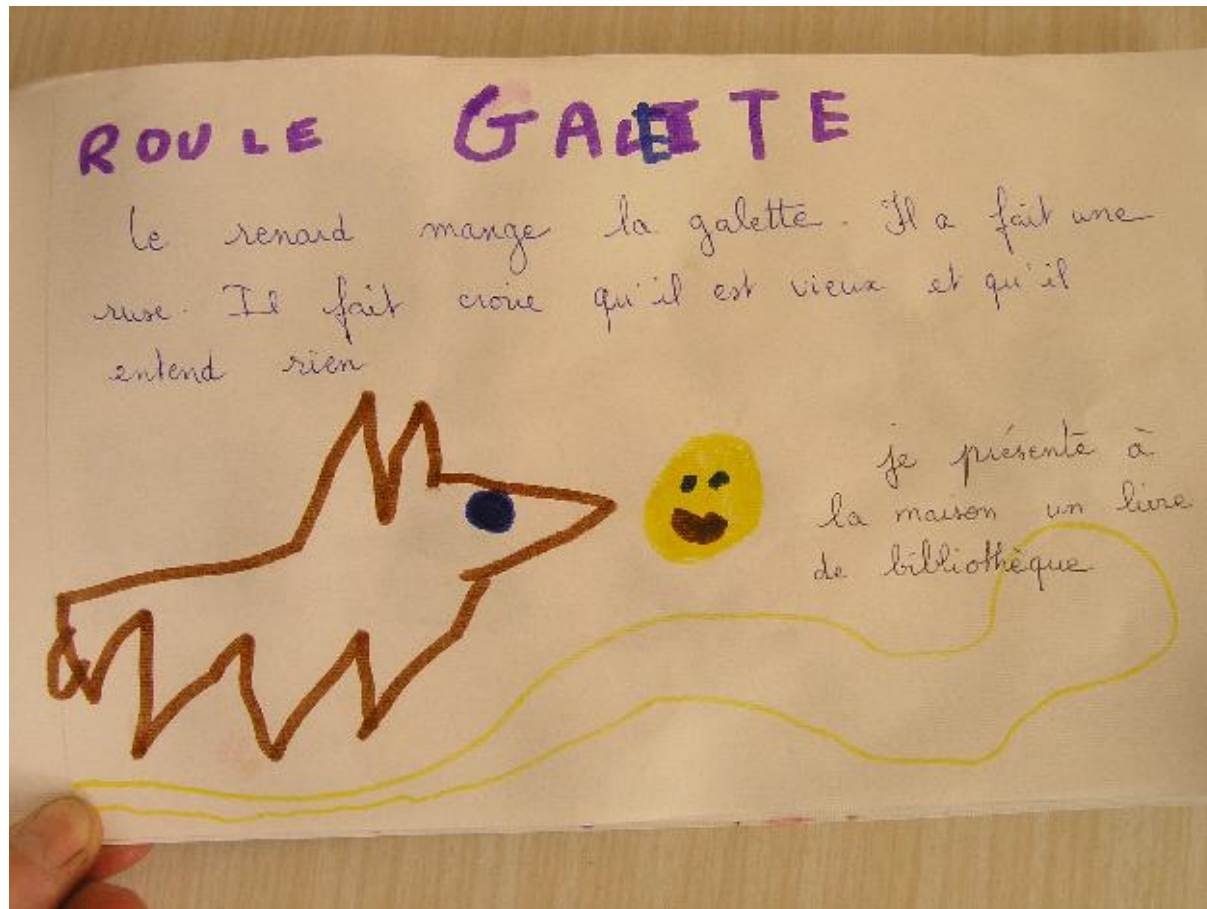 ROULE GALETTE
le renard mange la galette. Il a fait une
ruse. Il fait croire qu'il est vieux et qu'il
entend rien
je présente à
la maison un livre
de bibliothèque